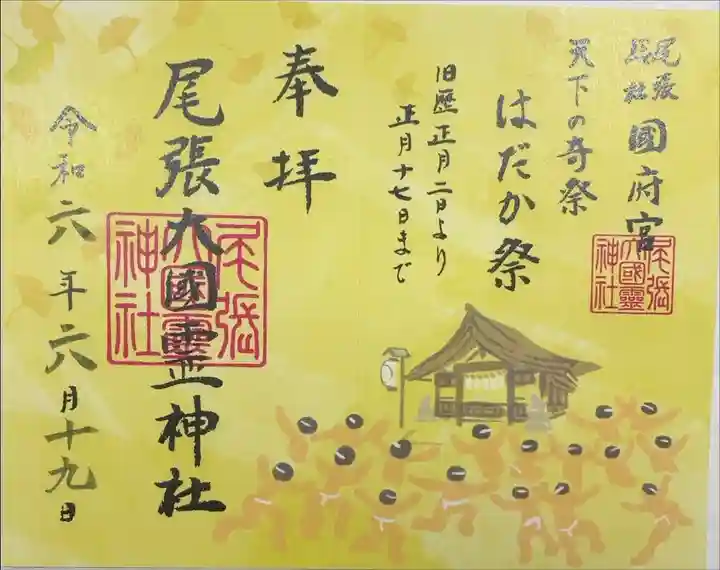 尾張
総社
國府宮
天下の奇祭
はだか祭
旧歴正月二日より
正月十七日まで
奉拝
尾張大國霊神社
令和六年六月十九日
尾張
大國靈
神社
尾張
大國靈
神社